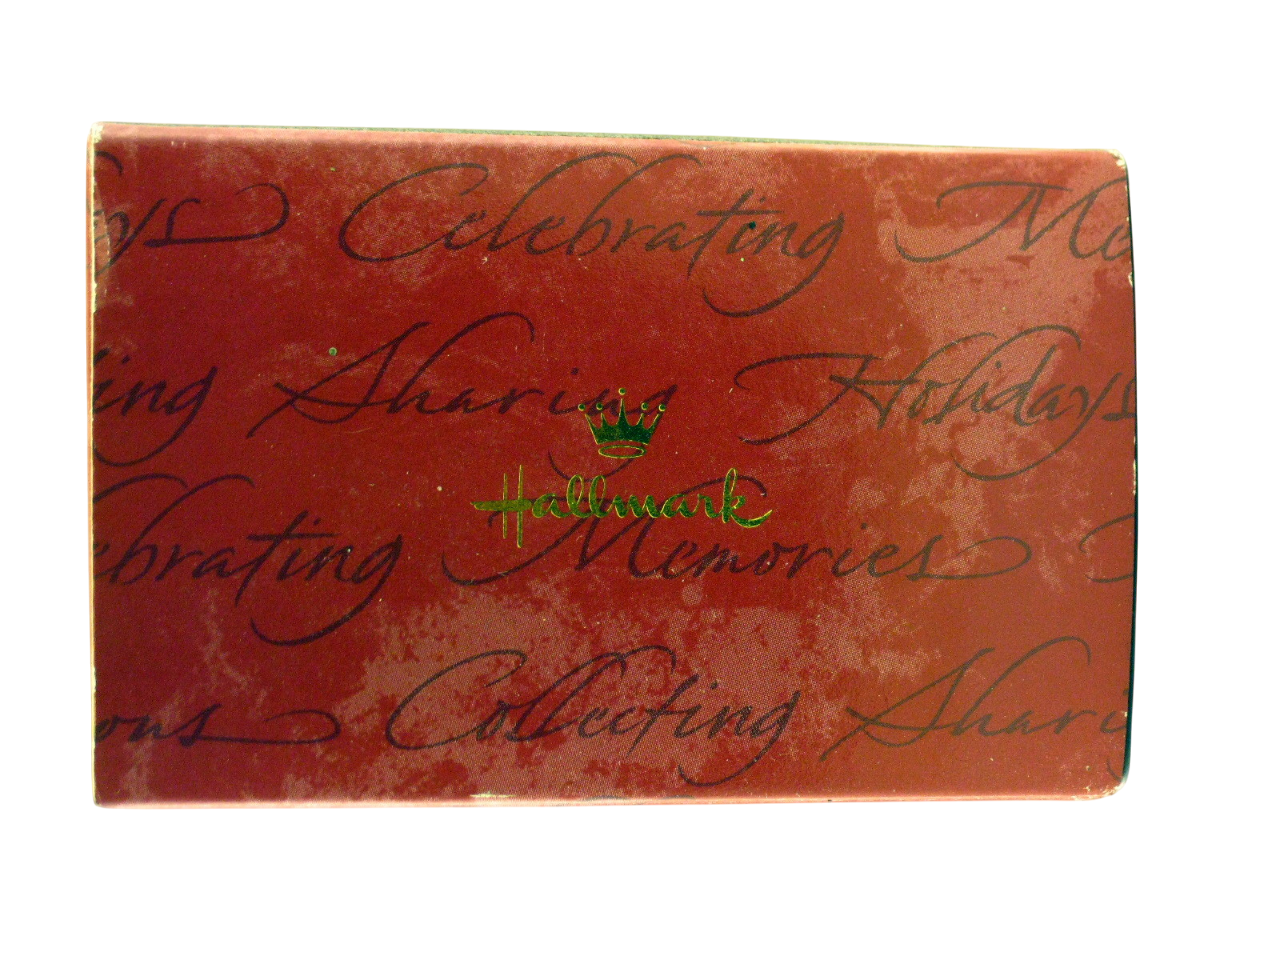 ys Celebrating M
ing Sharing Holidays
Hallmark
ebrating Memories
ous Collecting Shari